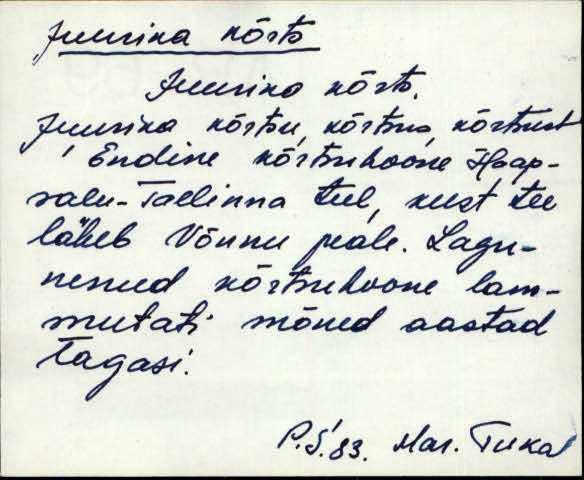 Juurika kõrts
Juurika kõrts,
Juurika kõrtsu, kõrtsus, kõrtsust
Endine kõrtsuhoone Haap-
salu-Tallinna teel, kust tee
läheb Võnnu peale. Lagu-
nenud kõrtsuhoone lam-
mutati mõned aastad
tagasi.
P.Š.83. Mar. Tuka